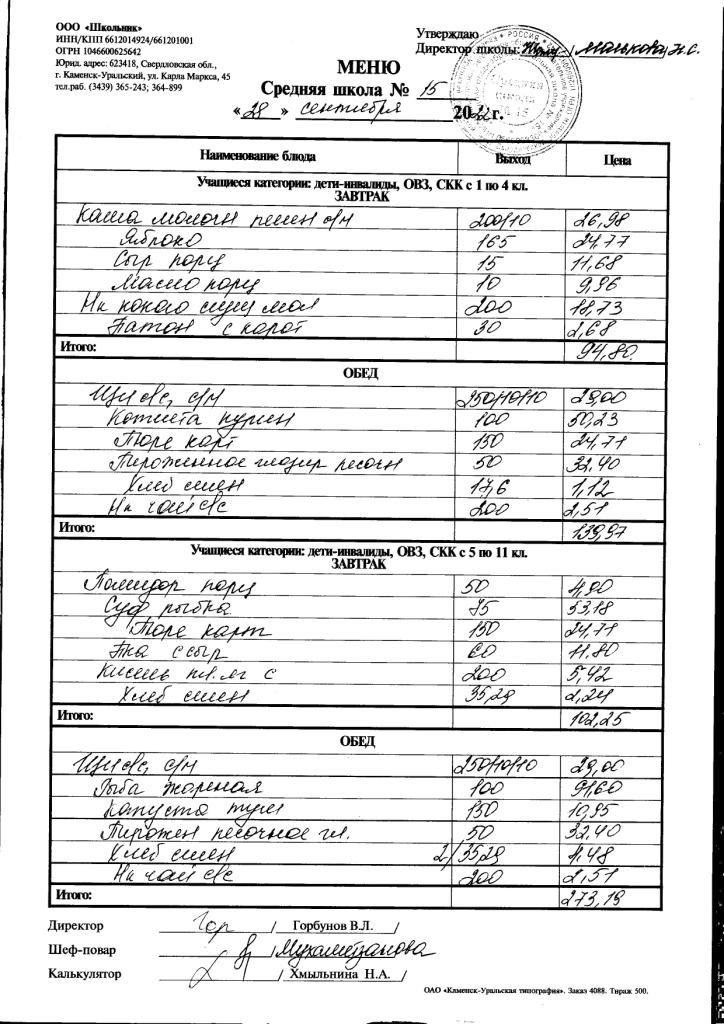 ООО «Школьник»
ИНН/КПП 6612014924/661201001
ОГРН 1046600625642
Юрид. адрес: 623418, Свердловская обл.,
г. Каменск-Уральский, ул. Карла Маркса, 45
тел.раб. (3439) 365-243; 364-899
Утверждаю
Директор школы: / Малькова Н.С.
МЕНЮ
Средняя школа № 15
«28» сентября 2022 г.
Наименование блюда Выход Цена
Учащиеся категории: дети-инвалиды, ОВЗ, СКК с 1 по 4 кл.
ЗАВТРАК
Каша молочн пшен с/м 200/10 26,98
Яблоко 165 24,77
Сыр порц 15 11,68
Масло порц 10 9,96
Нк какао сгущ мол 200 18,73
Батон с карот 30 2,68
Итого: 94,80
ОБЕД
Щи св, с/м 250/10/10 29,00
Котлета курин 100 50,23
Пюре карт 150 24,71
Пироженное глазир песочн 50 32,40
Хлеб смен 17,6 1,12
Нк чай св 200 2,51
Итого: 139,97
Учащиеся категории: дети-инвалиды, ОВЗ, СКК с 5 по 11 кл.
ЗАВТРАК
Помидор порц 50 4,90
Суф рыбка 75 53,18
Пюре карт 150 24,71
Тка с сыр 60 11.80
Кисель пл.яг с 200 5,42
Хлеб смен 35,29 2,24
Итого: 102,25
ОБЕД
Щи св, с/м 250/10/10 29,00
Рыба жареная 100 91,60
Капуста туш 150
Пирожен песочное гл. 50 32,40
Хлеб смен 2/35,29 4,48
Нк чай св 200 2,51
Итого: 273,19
Директор / Горбунов В.Л. /
Шеф-повар / Мухаметзанова
Калькулятор / Хмыльнина Н.А. /
ОАО «Каменск-Уральская типография». Заказ 4088. Тираж 500.